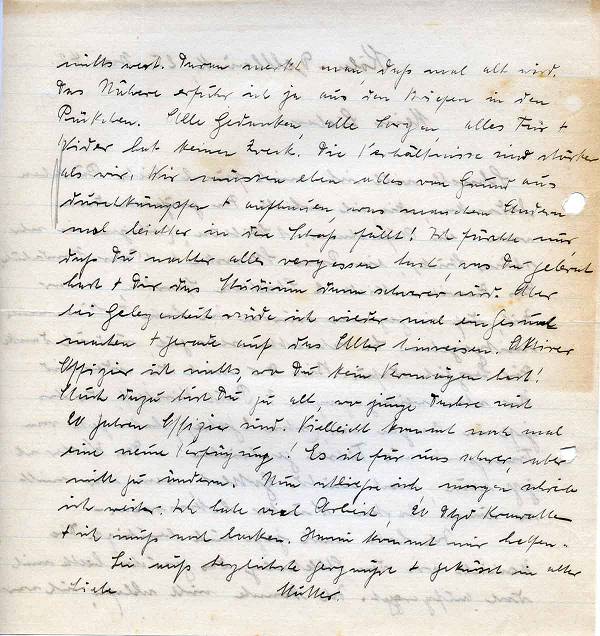 nichts wert. Daran merkt man, daß man alt wird.
Das Nähere erfuhr ich ja aus den Briefen in den
Päckchen. Alle Gedanken, alle Sorgen, alles Für +
Wider hat keinen Zweck. Die Verhältnisse sind stärker
als wir. Wir müssen eben alles von Grund aus
durchkämpfen + aufbauen, was manchem Andern
mal leichter in den Schoß fällt! Ich fürchte nur,
daß Du nachher alles vergessen hast, was Du gelernt
hast + Dir das Studium dann schwerer wird. Aber
bei Gelegenheit würde ich wieder mal ein Gesuch
machen + gerade auf das Alter hinweisen. Aktiver
Offizier ist nichts, wo Du kein Vermögen hast!
Auch dazu bist Du zu alt, wo junge Dachse mit
20 Jahren Offizier sind. Vielleicht kommt noch mal
eine neue Verfügung! Es ist für uns schwer, aber
nicht zu ändern. Nun schließe ich, morgen schreibe
ich weiter. Ich habe viel Arbeit, 20 Stgd
+ ich muß noch backen. kommt mir helfen.
Sei nun herzlichst gegrüßt + geküßt in aller
Liebe Mutter.